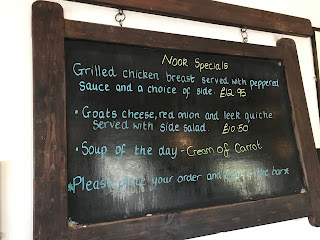 Noon Specials
Grilled chicken breast served with peppered
sauce and a choice of side. £12.95
• Goats cheese, red onion and leek quiche
served with side salad. £10.50
• Soup of the day - Cream of Carrot
*Please your order and the bar*